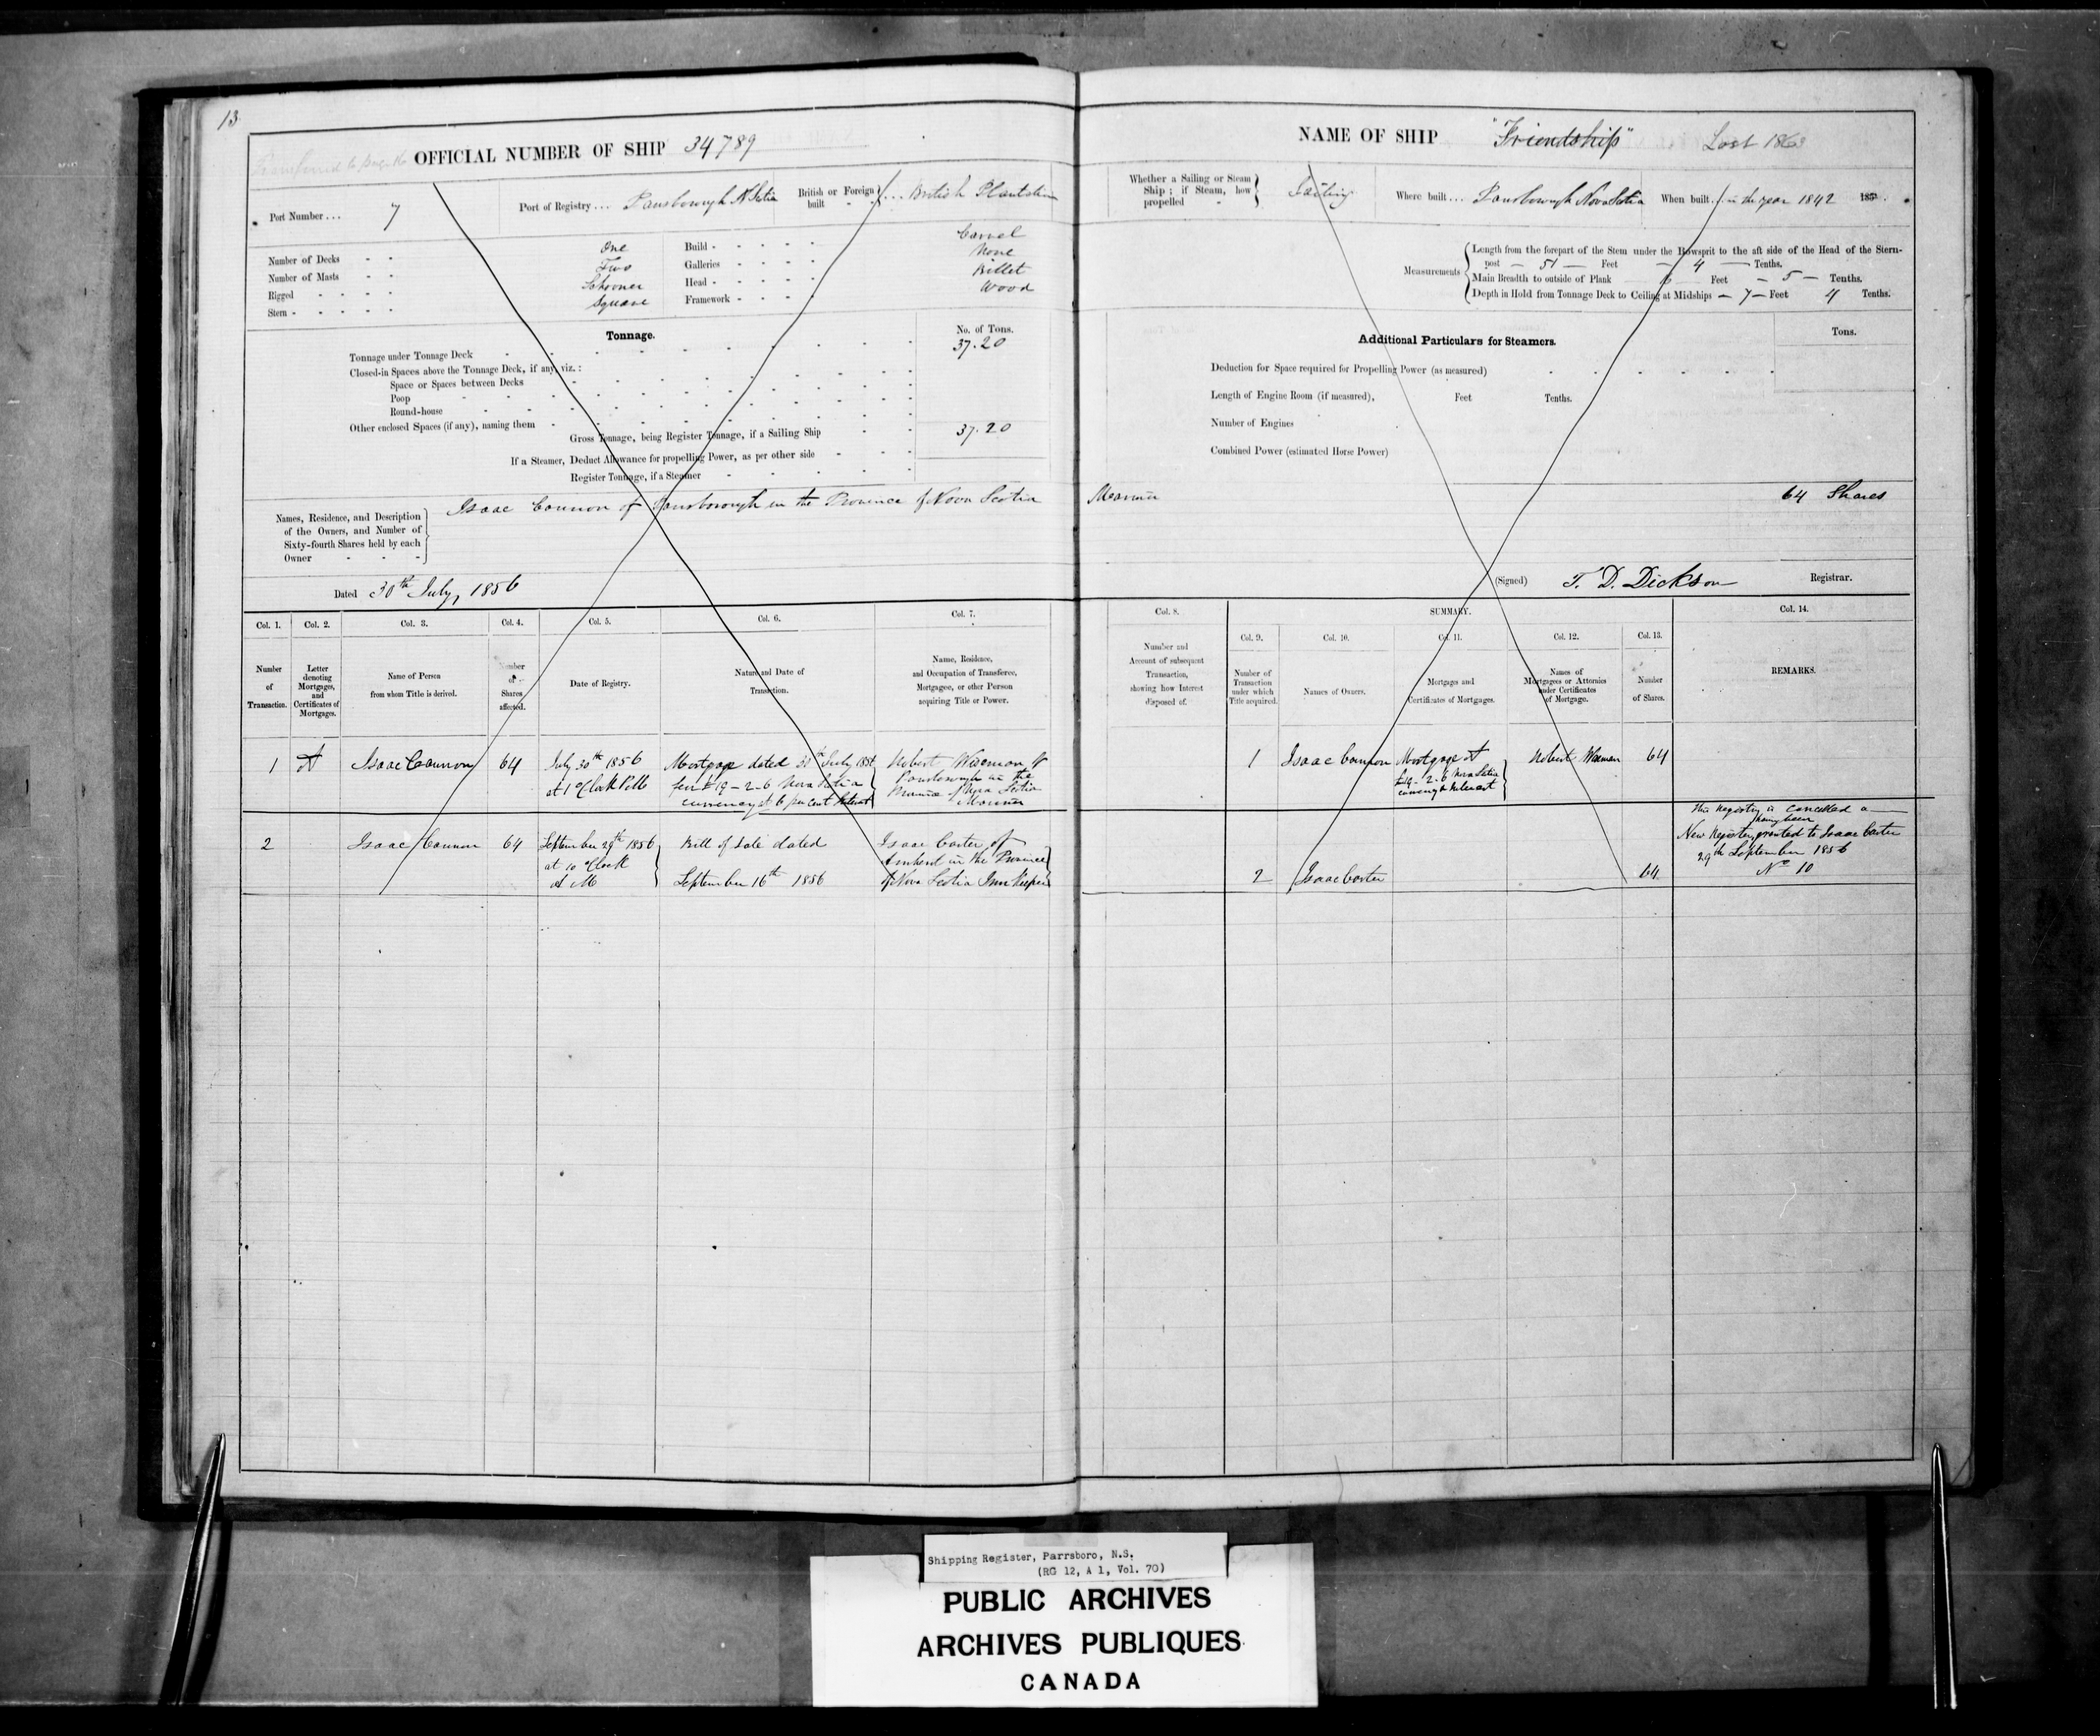 13
OFFICIAL NUMBER OF SHIP 34789
Port Number... 7
Port of Registry... Parrsborough N Scotia
British or Foreign built ... British Plantation
Number of Decks One
Number of Masts Two
Rigged Schooner
Stern Square
Build Carvel
Galleries None
Head Billet
Framework Wood
Tonnage. No. of Tons.
Tonnage under Tonnage Deck 37.20
Closed-in Spaces above the Tonnage Deck, if any, viz.:
Space or Spaces between Decks
Poop
Round-house
Other enclosed Spaces (if any), naming them
Gross Tonnage, being Register Tonnage, if a Sailing Ship 37.20
If a Steamer, Deduct Allowance for propelling Power, as per other side
Register Tonnage, if a Steamer
Names, Residence, and Description
of the Owners, and Number of
Sixty-fourth Shares held by each
Owner
Isaac Cannon of Parrsborough in the Province of Nova Scotia
Dated 30th July, 1856
Col. 1. Col. 2. Col. 3. Col. 4. Col. 5. Col. 6. Col. 7.
Number of Transaction.
Letter denoting Mortgages, and Certificates of Mortgages.
Name of Person from whom Title is derived.
Number of Shares affected.
Date of Registry.
Nature and Date of Transaction.
Name, Residence, and Occupation of Transferee, Mortgagee, or other Person acquiring Title or Power.
1 A Isaac Cannon 64
July 30th 1856
at 1 o'Clock P M
Mortgage dated 30th July 1856
for £19-2-6 Nova Scotia
currency at 6 per cent Interest
Robert
Parrsborough in the
Province of Nova Scotia
Mariner
2 Isaac Cannon 64
September 29th 1856
at 10 o'Clock
A M
Bill of Sale dated
September 16th 1856
Isaac Carter of
Amherst in the Province
of Nova Scotia Inn Keeper
NAME OF SHIP "Friendship" Lost 1863
Whether a Sailing or Steam Ship; if Steam, how propelled
Sailing
Where built... Parrsborough Nova Scotia
When built.. in the year 1842 185 .
Measurements
Length from the forepart of the Stem under the Bowsprit to the aft side of the Head of the Stern-
post — 51 — Feet — 4 — Tenths.
Main Breadth to outside of Plank Feet — 5 — Tenths.
Depth in Hold from Tonnage Deck to Ceiling at Midships — 7 — Feet 4 Tenths.
Additional Particulars for Steamers. Tons.
Deduction for Space required for Propelling Power (as measured)
Length of Engine Room (if measured), Feet Tenths.
Number of Engines
Combined Power (estimated Horse Power)
Mariner 64 Shares
(Signed) T. D. Dickson Registrar.
Col. 8. SUMMARY. Col. 14.
Col. 9. Col. 10. Col. 11. Col. 12. Col. 13.
Number and Account of subsequent Transaction, showing how Interest disposed of.
Number of Transaction under which Title acquired.
Names of Owners.
Mortgages and Certificates of Mortgages.
Names of Mortgagees or Attornies under Certificates of Mortgage.
Number of Shares.
REMARKS.
1 Isaac Cannon
Mortgage A
£19-2-6 Nova Scotia
currency & Interest
Robert 64
2 Isaac Carter 64
This Registry is cancelled a
having been
New Registry granted to Isaac Carter
29th September 1856
No 10
Shipping Register, Parrsboro, N.S.
(RG 12, A 1, Vol. 70)
PUBLIC ARCHIVES
ARCHIVES PUBLIQUES
CANADA